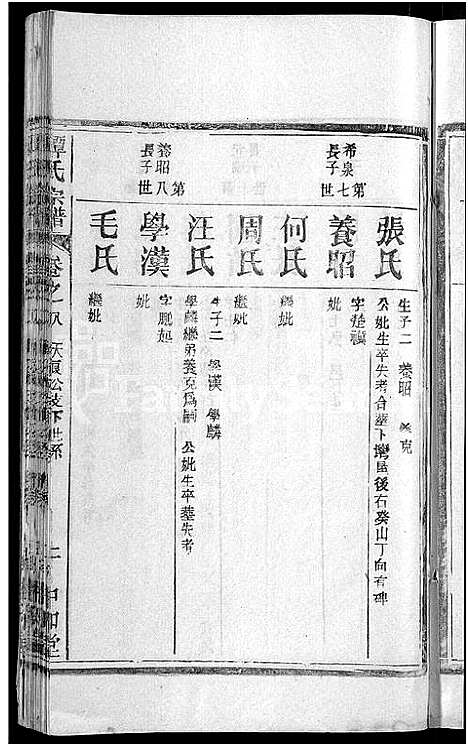 希泉
長子
第七
世
張氏
生子二 養昭 養克
公妣生卒失考合葬下灣屋後右癸山丁向有碑
養昭
字楚漢
妣
何氏
繼妣
周氏
繼妣
養昭
長子
第八
世
汪氏
生子二 學漢 學麟
學麟繼弟養克爲嗣 公妣生卒墓失考
學漢
字鵬起
妣
毛氏
繼妣
譚氏宗譜
卷之八
公支下世系